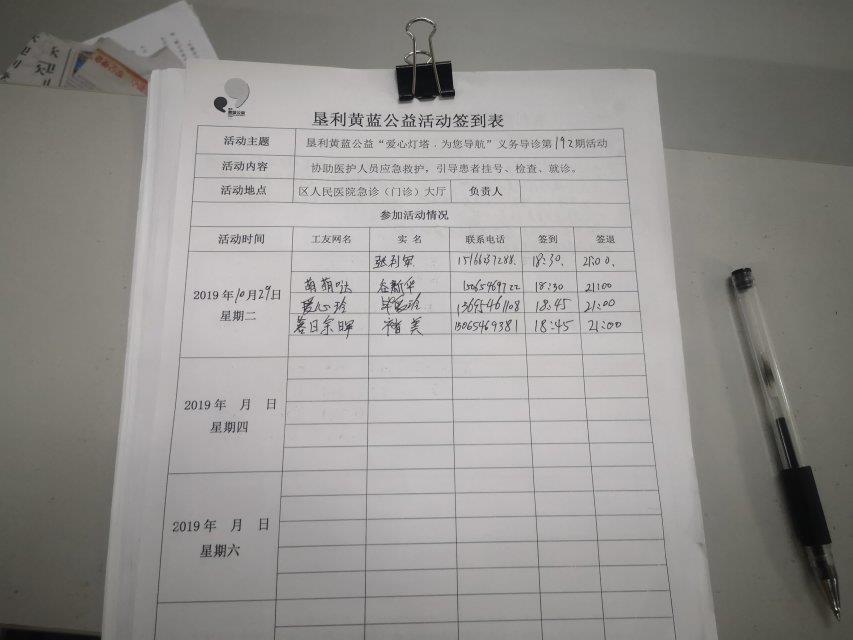 垦利黄蓝公益活动签到表
活动主题 垦利黄蓝公益“爱心灯塔﹒为您导航”义务导诊第192期活动
活动内容 协助医护人员应急救护，引导患者挂号、检查、就诊。
活动地点 区人民医院急诊（门诊）大厅 负责人
参加活动情况
活动时间 工友网名 实 名 联系电话 签到 签退
张利军 18:30. 21:00.
萌萌哒 谷新华 15065469722 18:30 21:00
2019 年10月29日
爱心玲 13654646108 18:45 21:00
星期二
暮日余晖 褚美 15065469381 18:45 21:00
2019 年 月 日
星期四
2019 年 月 日
星期六